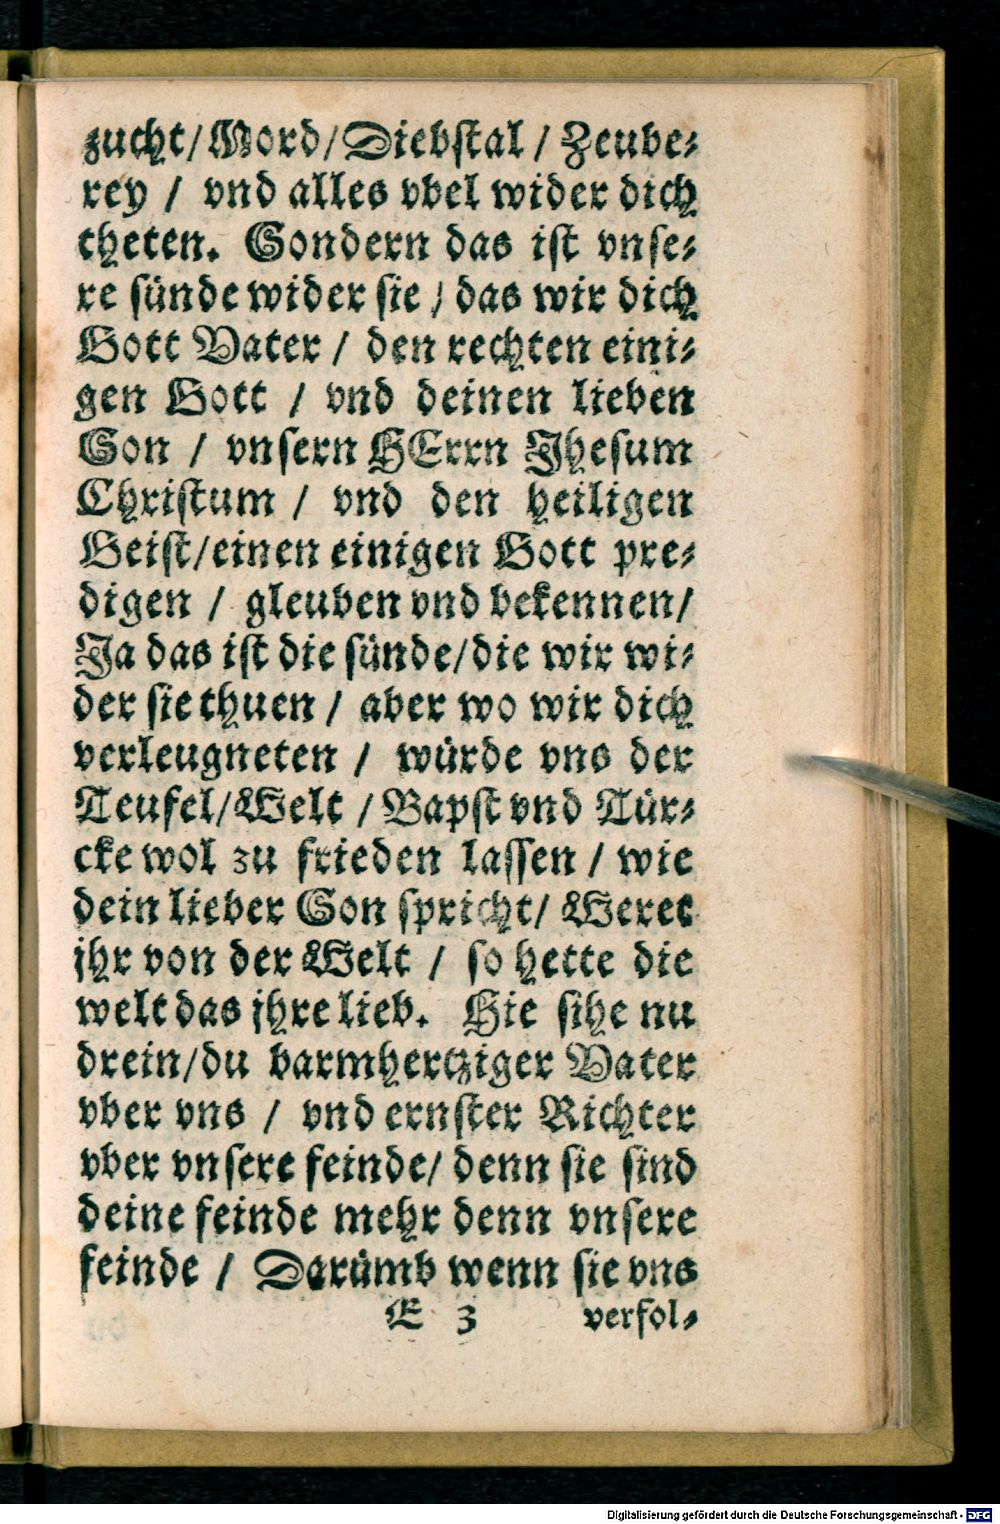 zucht/Mord/Diebstal / Zeube⸗
rey / vnd alles vbel wider dich
theten. Sondern das ist vnse⸗
re sünde wider sie / das wir dich
Gott Vater / den rechten eini⸗
gen Gott / vnd deinen lieben
Son / vnsern HErrn Jhesum
Christum / vnd den heiligen
Geist/einen einigen Gott pre⸗
digen / gleuben vnd bekennen/
Ja das ist die sünde/die wir wi⸗
der sie thuen / aber wo wir dich
verleugneten / würde vns der
Teufel/Welt / Bapst vnd Tür⸗
cke wol zu frieden lassen / wie
dein lieber Son spricht/ Weret
jhr von der Welt / so hette die
welt das jhre lieb. Hie sihe nu
drein/du barmhertziger Vater
vber vns / vnd ernster Richter
vber vnsere feinde/ denn sie sind
deine feinde mehr denn vnsere
feinde / Darümb wenn sie vns
E 3 verfol⸗
Digitalisierung gefördert durch die Deutsche Forschungsgemeinschaft - DFG